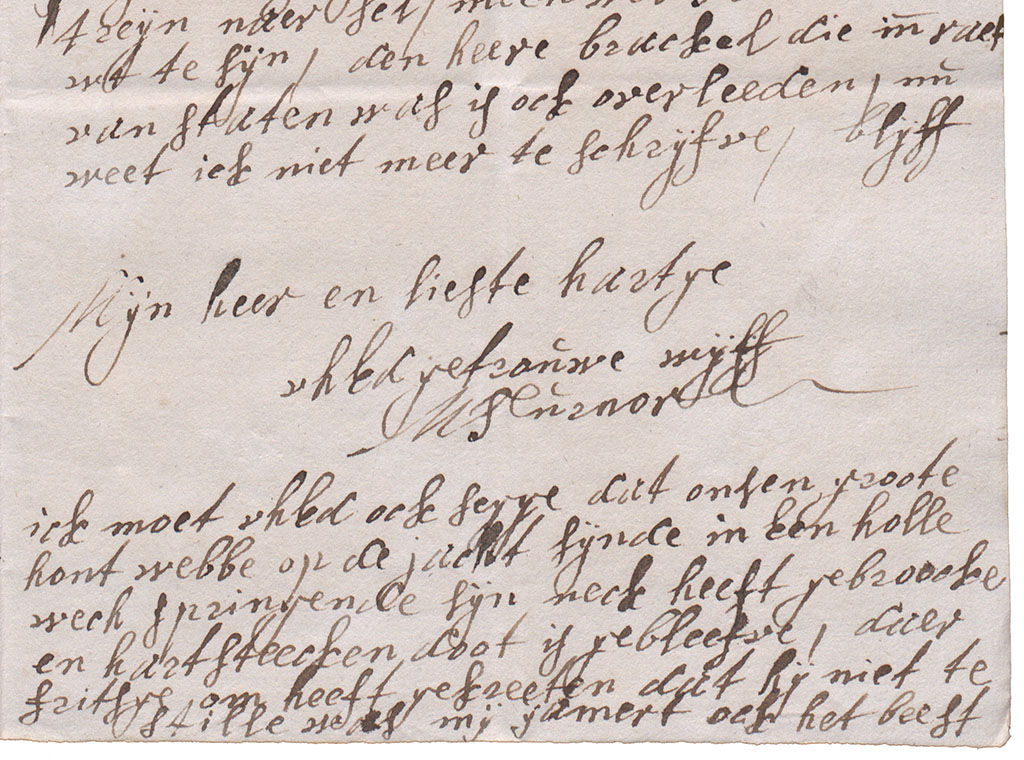 treyn naer het / meen
wt te sijn / den heere brackel die in raet
van staten was is ock overleeden / nu
weet ick niet meer te schrijfve / blijff
Mijn heer en liefste hartye
uhEd getrouwe wijff
M Turnor
ick moet uhEd ock segge dat onsen groote
hont webbe op de jacht sijnde in een holle
wech springende sijn neck heeft gebroocke
en hartsteecken doot is gebleefve / daer
fritsye om heeft gekreeten dat hij niet te
stille was mij jamert ock het beest